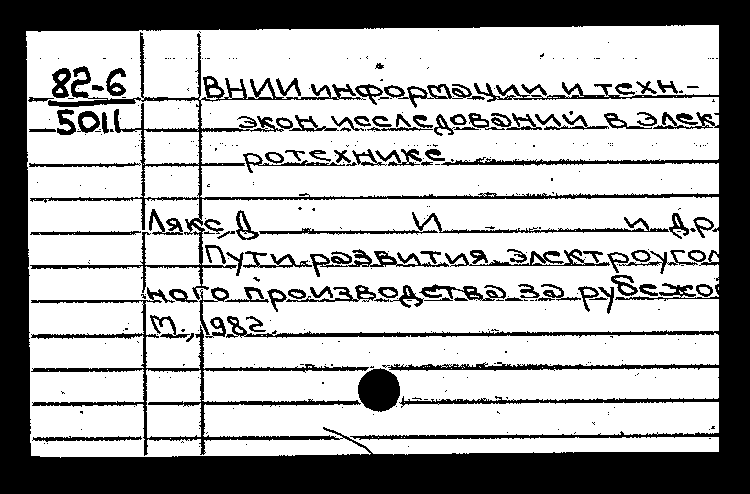 82-6
5011
ВНИИ информации и техн.-
экон. исследований в элект
ротехнике
Лякс, Д И и др.
Пути развития электроугол
ного производства за рубежо
М., 1982.